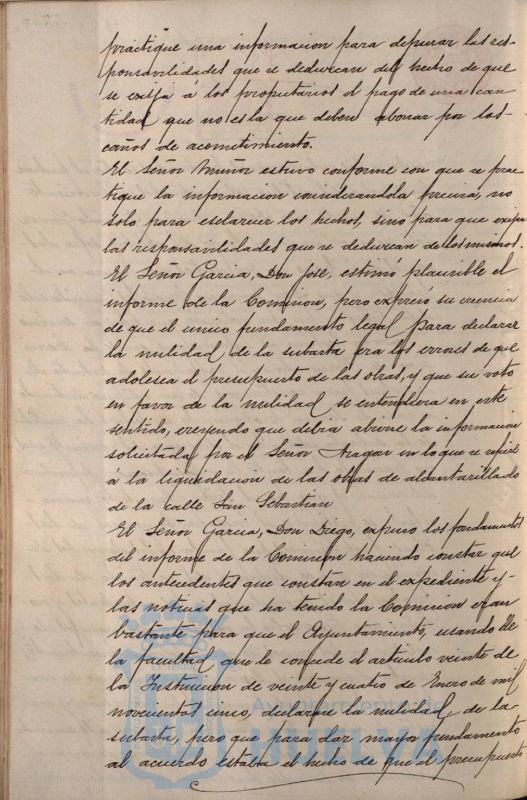 practique una informacion para depurar las res-
ponsavilidades que se dedurcan del hecho de que
se exija á los propietarios el pago de una can-
tidad que no es la que deben abonar por los
caños de acometimiento.
El Señor Muñoz estuvo conforme con que se prac-
tique la informacion considerandola precisa, no
solo para esclarecer los hechos, sino para que exijan
las responsavilidades que se dedurcan de los mismos.
El Señor Garcia, Don José, estimó plausible el
informe de la Comision, pero expresó su creencia
de que el unico fundamento legal para declarar
la nulidad de la subasta era los errores de que
adolesca el presupuesto de las obras, y que su voto
en favor de la nulidad se entendiera en este
sentido, creyendo que debia abrirse la informacion
solicitada por el Señor Aragon en lo que se refiere
á la liquidacion de las obras de alcantarillado
de la calle San Sebastian
El Señor Garcia, Don Diego, expuso los fundamentos
del informe de la Comision haciendo constar que
los antecedentes que constan en el expediente y
las noticias que ha tenido la Comision eran
bastante para que el Ayuntamiento, usando de
la facultad que le concede el articulo veinte de
la Instruccion de veinte y cuatro de Enero de mil
novecientos cinco, declarase la nulidad de la
subasta, pero que para dar mayor fundamento
al acuerdo estaba el hecho de que el presupuesto
Ayuntamiento de
HUELVA